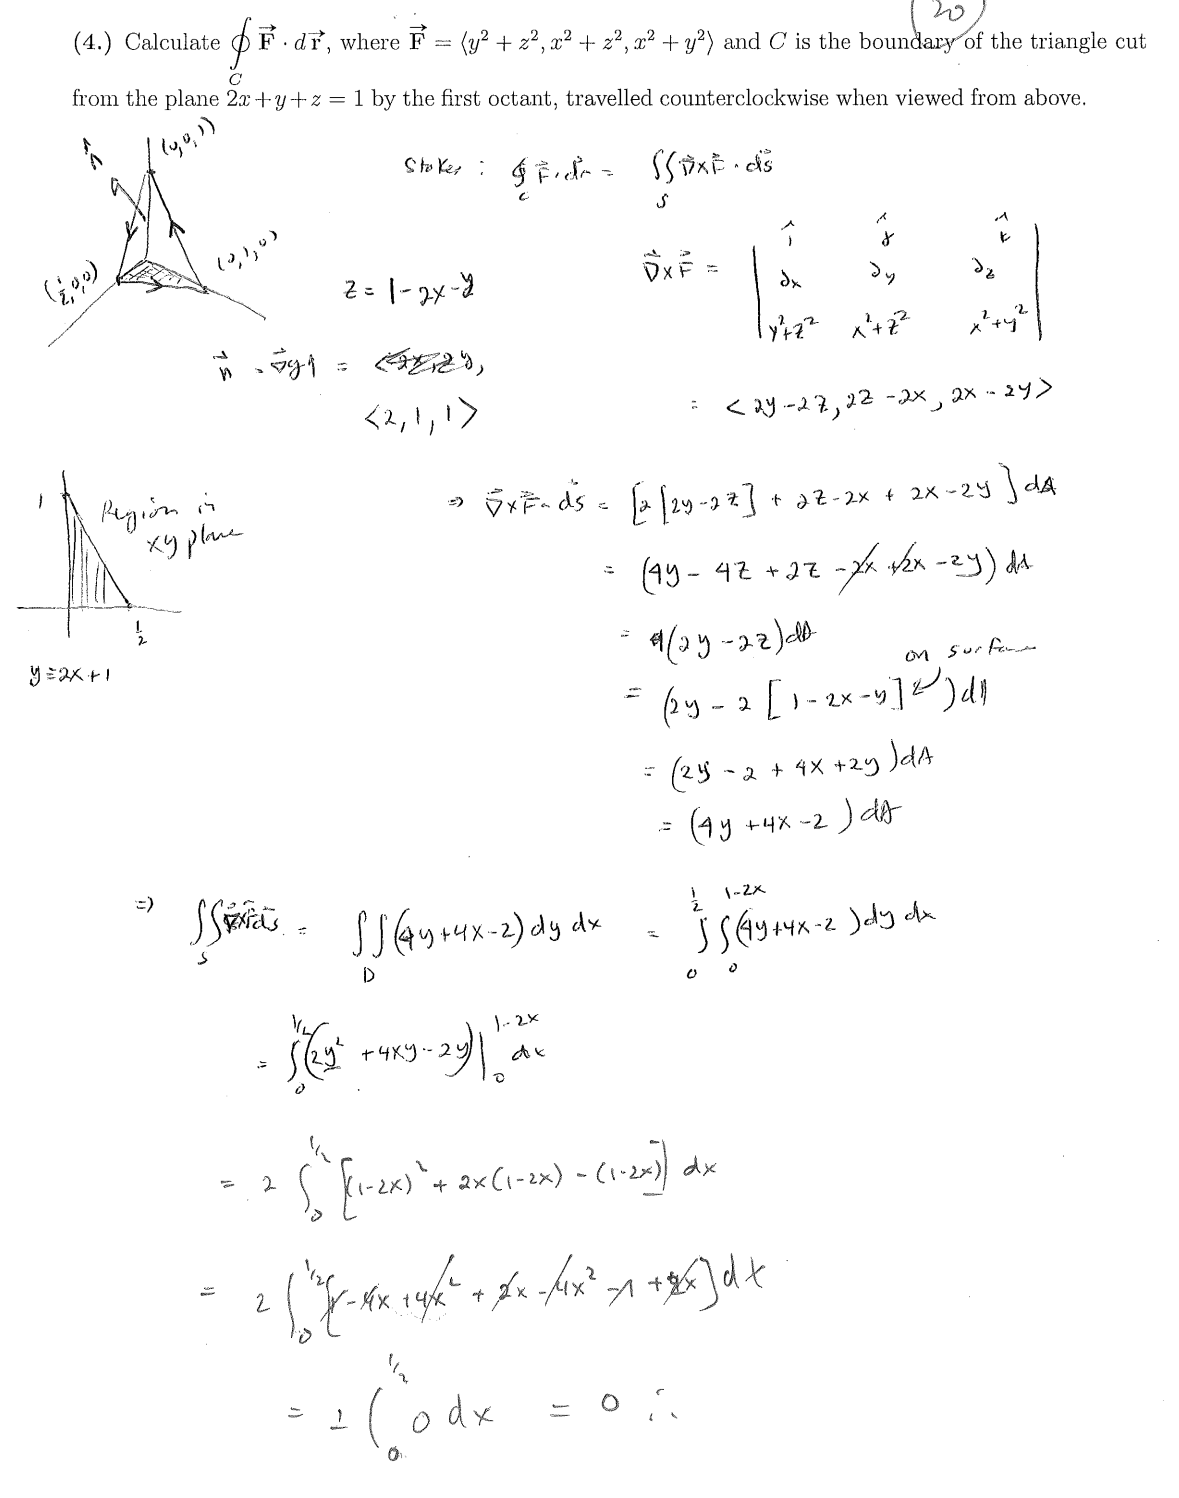 20
(4.) Calculate ∮_C F⃗ · dr⃗, where F⃗ = ⟨y² + z², x² + z², x² + y²⟩ and C is the boundary of the triangle cut
from the plane 2x + y + z = 1 by the first octant, travelled counterclockwise when viewed from above.
(0,0,1)
n̂
(0,1,0)
(½,0,0)
Stokes : ∮_C F⃗·dr⃗ = ∬_S ∇⃗×F⃗ · dS⃗
∇⃗×F⃗ = | î ĵ k̂
∂x ∂y ∂z
y²+z² x²+z² x²+y² |
z = 1-2x-y
= <2y-2z, 2z-2x, 2x-2y>
<2,1,1>
1
Region in
xy plane
½
y = 2x+1
⇒ ∇⃗×F⃗·dS⃗ = [2[2y-2z] + 2z-2x + 2x-2y] dA
= (4y - 4z + 2z - 2x + 2x - 2y) dA
= (2y - 2z) dA
on surface
= (2y - 2 [1-2x-y]) dA
= (2y - 2 + 4x + 2y) dA
= (4y + 4x - 2) dA
⇒ ∬_S ∇⃗×F⃗·dS⃗ = ∬_D (4y+4x-2) dy dx = ∫_0^{1/2} ∫_0^{1-2x} (4y+4x-2) dy dx
= ∫_0^{1/2} (2y² + 4xy - 2y)|_0^{1-2x} dx
= 2 ∫_0^{1/2} [(1-2x)² + 2x(1-2x) - (1-2x)] dx
= 2 ∫_0^{1/2} [1 - 4x + 4x² + 2x - 4x² - 1 + 2x] dx
= 2 ∫_0^{1/2} 0 dx = 0 ∴